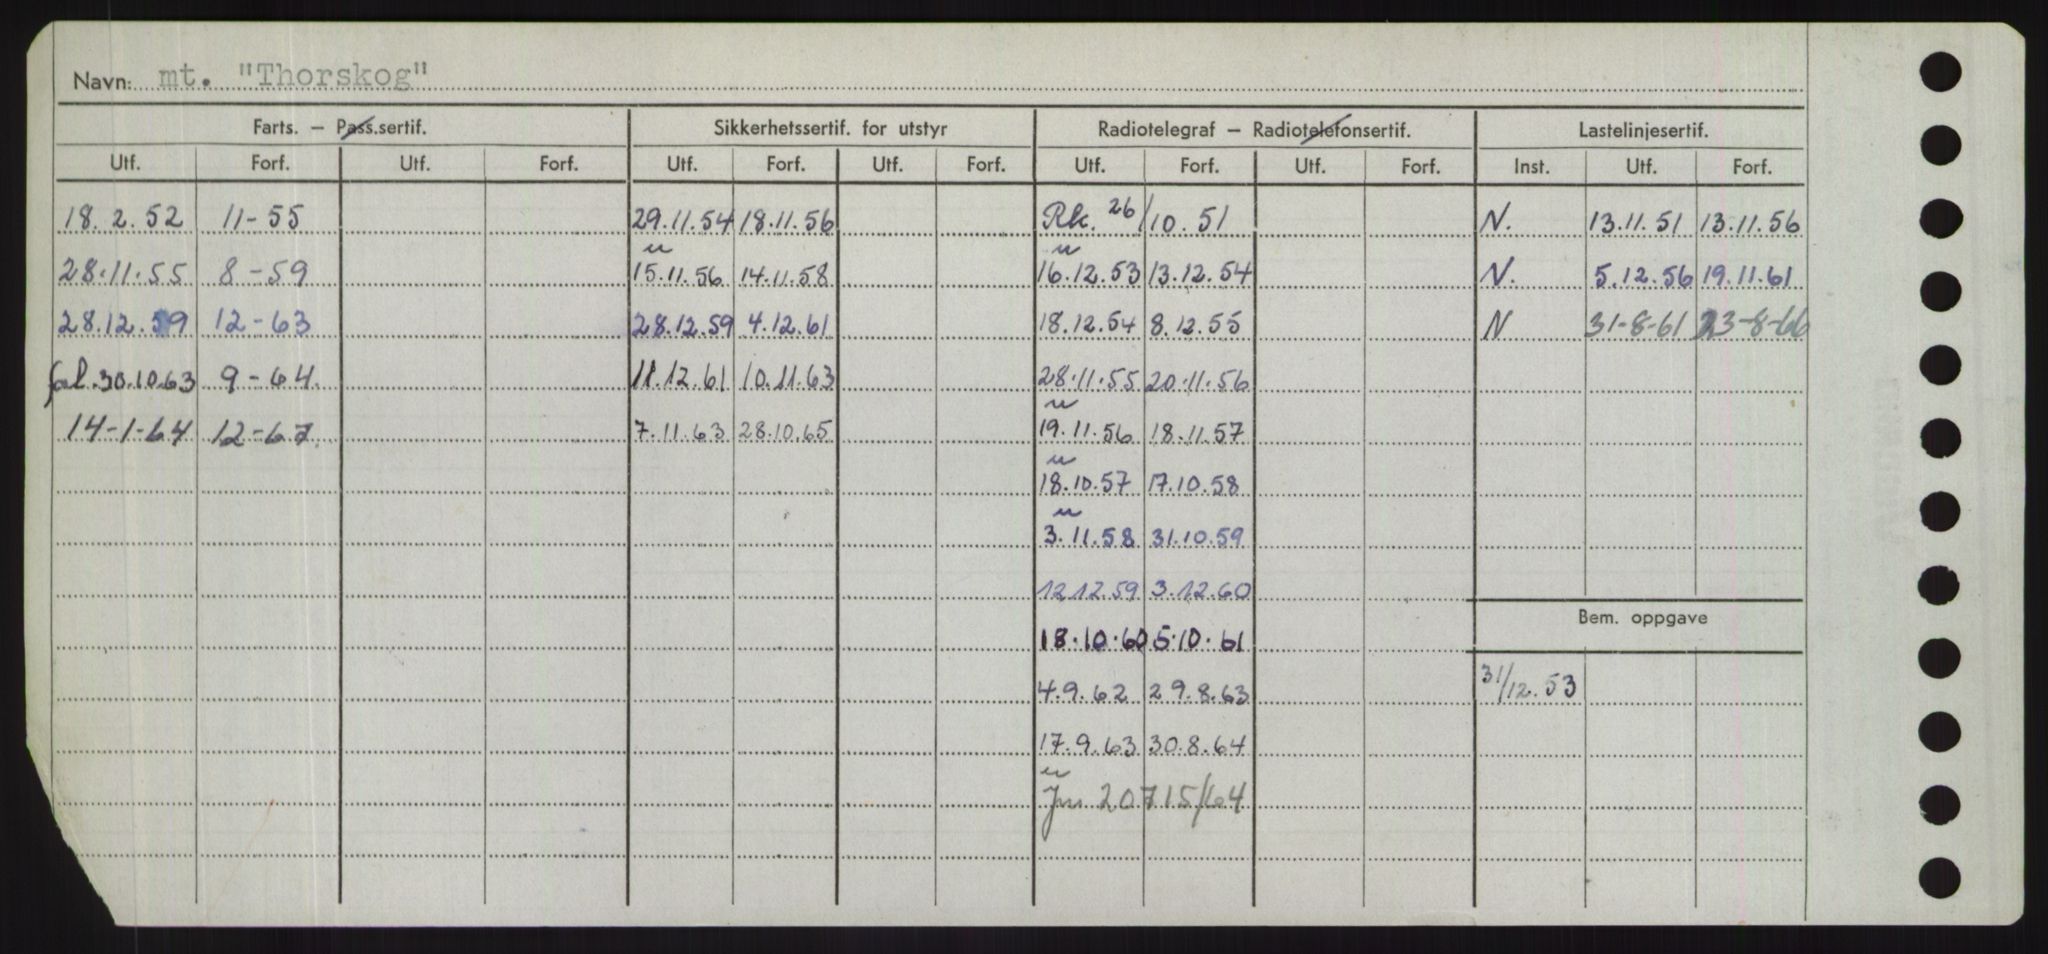 Navn: mt. "Thorskog"
Farts. — Pass.sertif. Sikkerhetssertif. for utstyr Radiotelegraf — Radiotelefonsertif. Lastelinjesertif.
Utf. Forf. Utf. Forf. Utf. Forf. Utf. Forf. Utf. Forf. Utf. Forf. Inst. Utf. Forf.
18.2.52 11-55 29.11.54 18.11.56 Rk. 26/10.51 N. 13.11.51 13.11.56
28.11.55 8-59 15.11.56 14.11.58 16.12.53 13.12.54 N. 5.12.56 19.11.61
28.12.59 12-63 28.12.59 4.12.61 18.12.54 8.12.55 N 31-8-61 23-8-66
fal.30.10.63 9-64. 11.12.61 10.11.63 28.11.55 20.11.56
14-1-64 12-67. 7.11.63 28.10.65 19.11.56 18.11.57
18.10.57 17.10.58
3.11.58 31.10.59
12.12.59 3.12.60
Bem. oppgave
18.10.60 5.10.61
4.9.62 29.8.63 31/12.53
17.9.63 30.8.64
20715/64